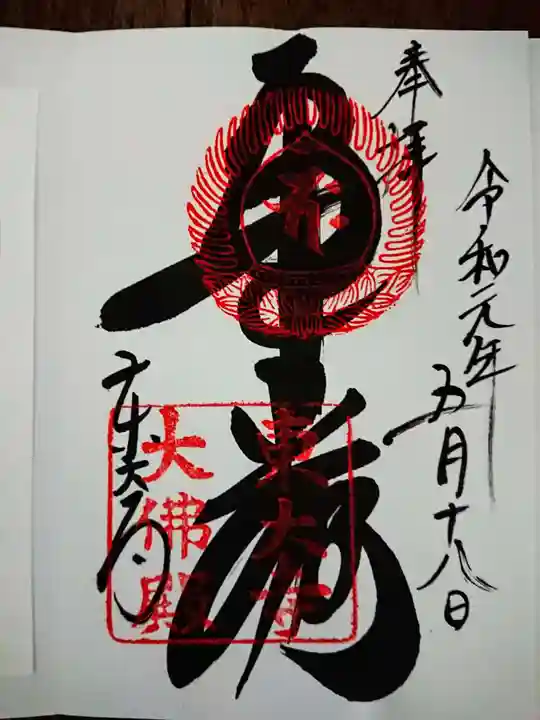 令和元年五月十八日
奉拝
華厳
東大寺
大佛殿
東大寺